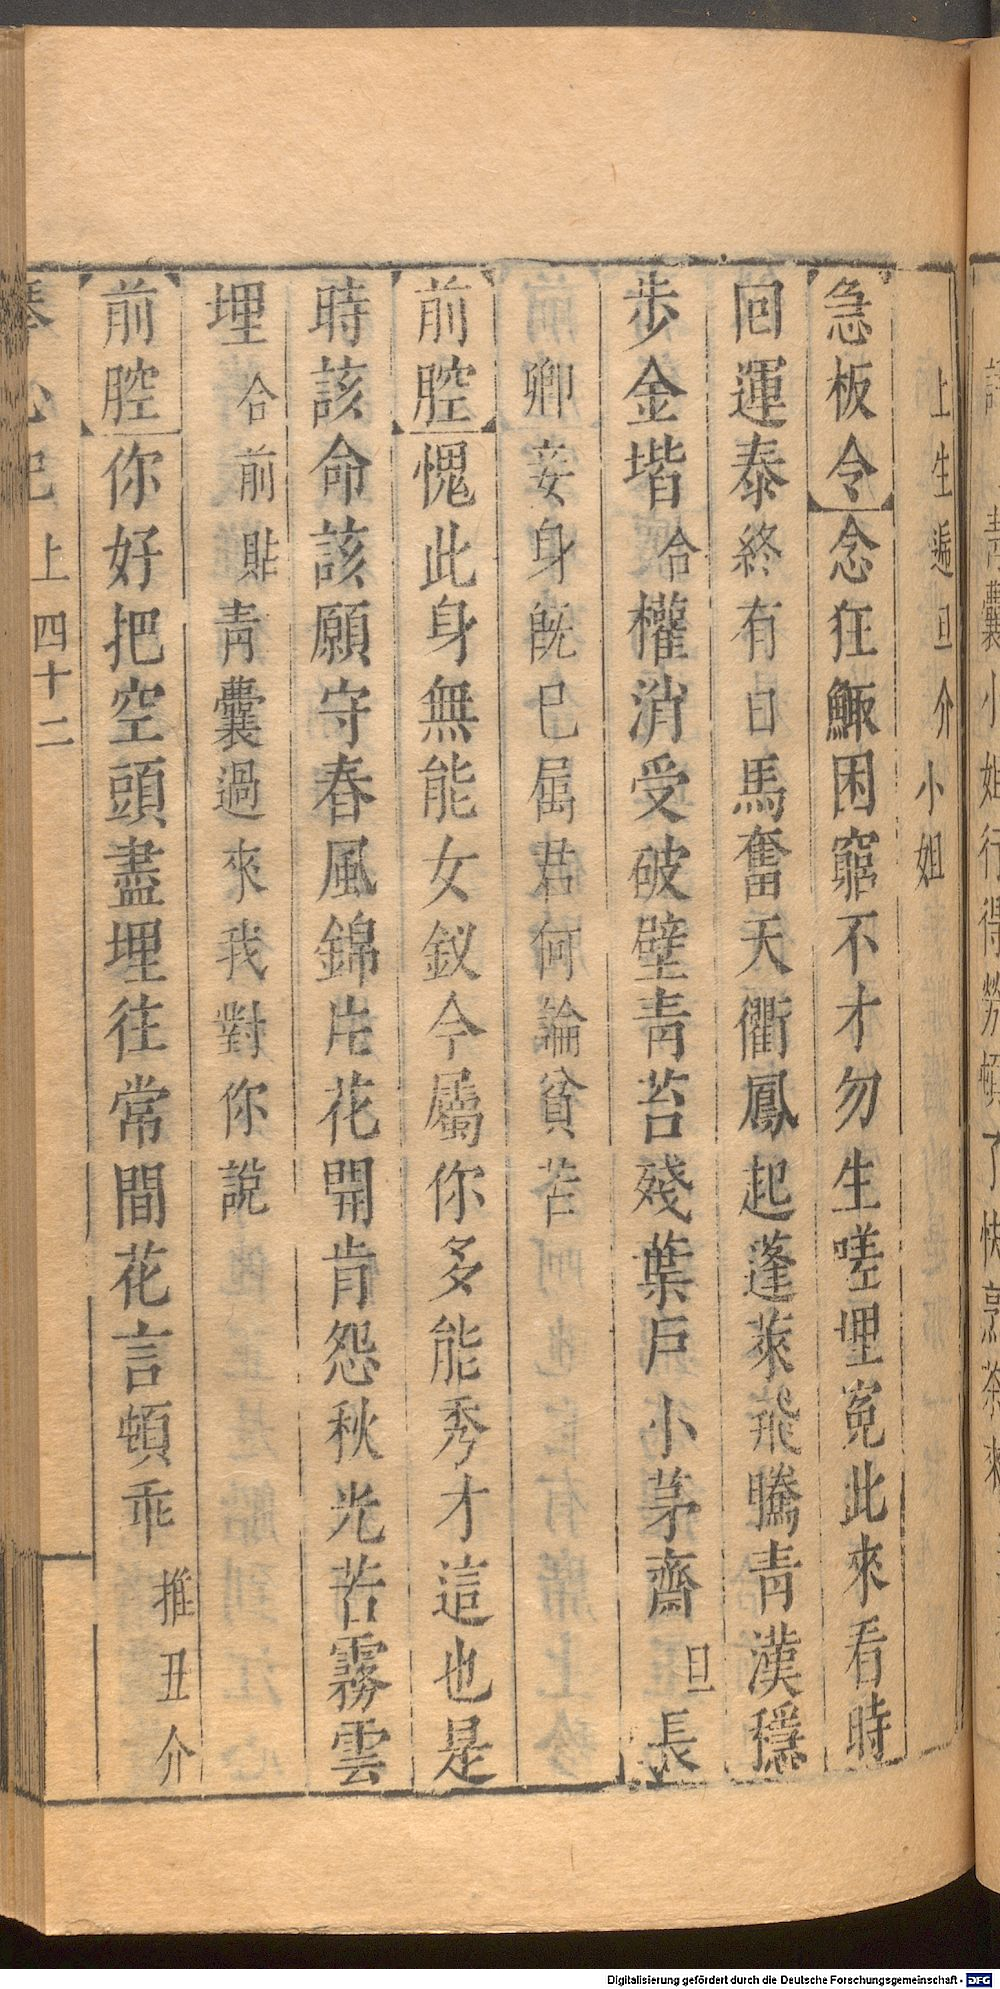 上生遞旦介小姐
急板令念狂鯫困窮不才勿生嗟埋寃此來看時
回運泰終有日馬奮天衢鳳起蓬萊飛騰青漢穩
步金堦合權消受破壁青苔殘葉戶小茅齋旦長
卿妾身旣已屬君何論貧苦
前腔愧此身無能女釵今屬你多能秀才這也是
時該命該願守春風錦片花開肯怨秋光苦霧雲
埋合前貼靑囊過來我對你說
前腔你好把空頭盡埋往常間花言頓乖推丑介
琴心記上四十二
靑囊小姐行得勞頓了快烹茶來
Digitalisierung gefördert durch die Deutsche Forschungsgemeinschaft - DFG